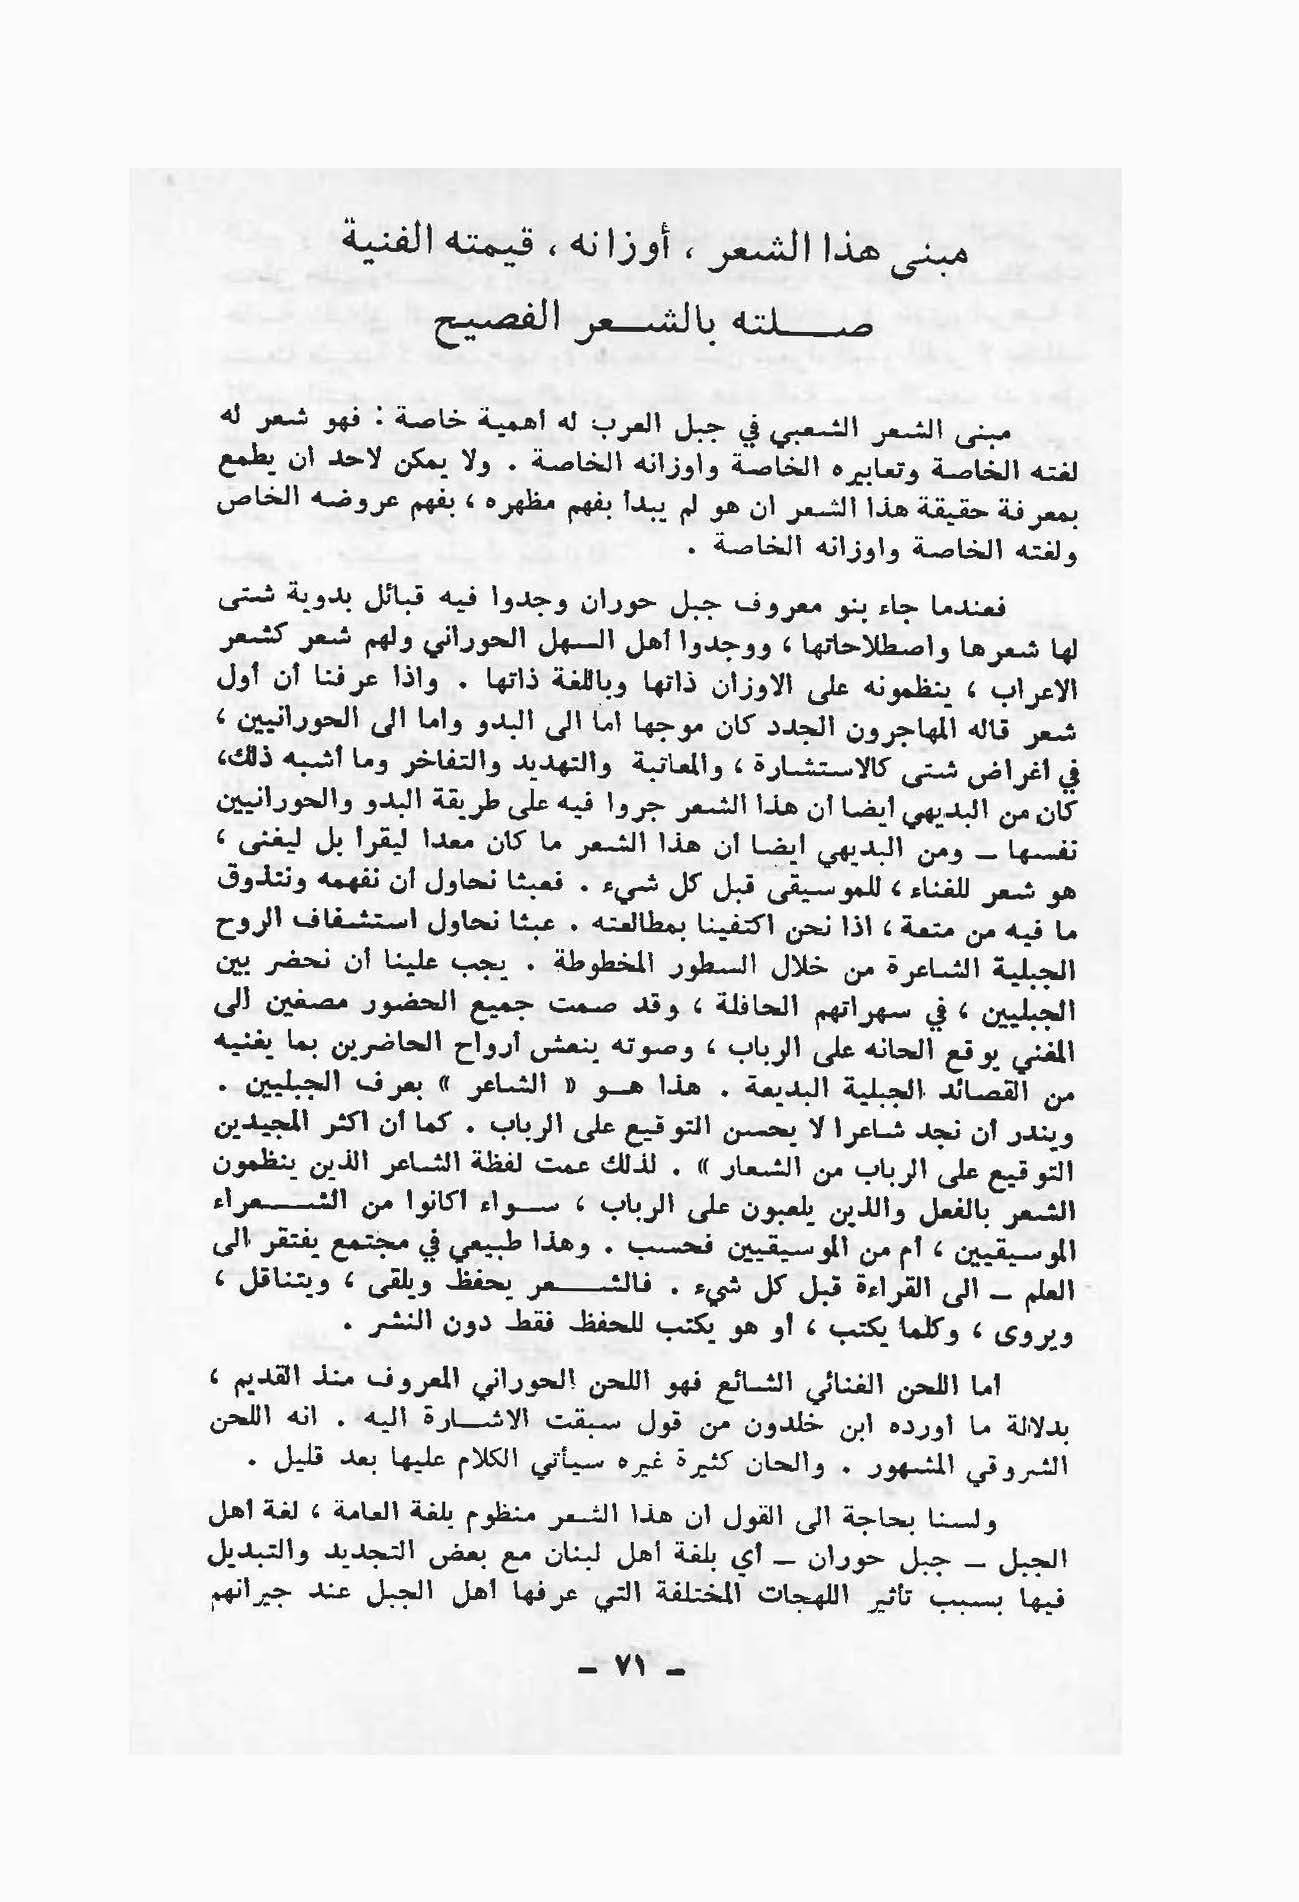 مبنى هذا الشعر ، أوزانه ، قيمته الفنية
صلته بالشعر الفصيح
مبنى الشعر الشعبي في جبل العرب له أهمية خاصة : فهو شعر له
لغته الخاصة وتعابيره الخاصة واوزانه الخاصة . ولا يمكن لاحد ان يطمع
بمعرفة حقيقة هذا الشعر ان هو لم يبدأ بفهم مظهره ، بفهم عروضه الخاص
ولغته الخاصة واوزانه الخاصة .
فعندما جاء بنو معروف جبل حوران وجدوا فيه قبائل بدوية شتى
لها شعرها واصطلاحاتها ، ووجدوا أهل السهل الحوراني ولهم شعر كشعر
الاعراب ، ينظمونه على الاوزان ذاتها وباللغة ذاتها . واذا عرفنا أن أول
شعر قاله المهاجرون الجدد كان موجها اما الى البدو واما الى الحورانيين ،
في أغراض شتى كالاستشارة ، والمعاتبة والتهديد والتفاخر وما أشبه ذلك،
كان من البديهي أيضا أن هذا الشعر جروا فيه على طريقة البدو والحورانيين
نفسها – ومن البديهي أيضا أن هذا الشعر ما كان معدا ليقرأ بل ليغنى ،
هو شعر للغناء ، للموسيقى قبل كل شيء . فعبثا نحاول أن نفهمه ونتذوق
ما فيه من متعة ، اذا نحن اكتفينا بمطالعته . عبثا نحاول استشفاف الروح
الجبلية الشاعرة من خلال السطور المخطوطة . يجب علينا أن نحضر بين
الجبليين ، في سهراتهم الحافلة ، وقد صمت جميع الحضور مصغين الى
المغني يوقع الحانه على الرباب ، وصوته ينعش أرواح الحاضرين بما يغنيه
من القصائد الجبلية البديعة . هذا هو « الشاعر » بعرف الجبليين .
ويندر أن نجد شاعرا لا يحسن التوقيع على الرباب . كما أن أكثر المجيدين
التوقيع على الرباب من الشعار » . لذلك عمت لفظة الشاعر الذين ينظمون
الشعر بالفعل والذين يلعبون على الرباب ، سواء أكانوا من الشعراء
الموسيقيين ، أم من الموسيقيين فحسب . وهذا طبيعي في مجتمع يفتقر الى
العلم – الى القراءة قبل كل شيء . فالشعر يحفظ ويلقى ، ويتناقل ،
ويروى ، وكلما يكتب ، أو هو يكتب للحفظ فقط دون النشر .
أما اللحن الغنائي الشائع فهو اللحن الحوراني المعروف منذ القديم ،
بدلالة ما أورده ابن خلدون من قول سبقت الاشارة اليه . انه اللحن
الشروقي المشهور . والحان كثيرة غيره سيأتي الكلام عليها بعد قليل .
ولسنا بحاجة الى القول ان هذا الشعر منظوم بلغة العامة ، لغة أهل
الجبل – جبل حوران – أي بلغة أهل لبنان مع بعض التجديد والتبديل
فيها بسبب تأثير اللهجات المختلفة التي عرفها أهل الجبل عند جيرانهم
– ٧١ –